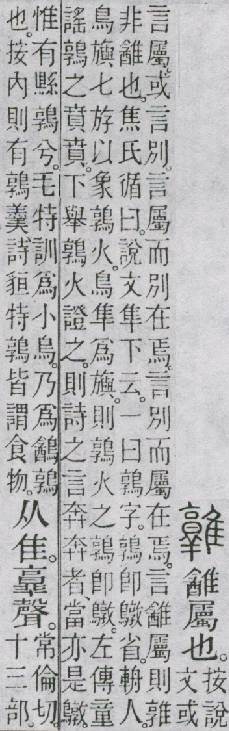 䨄
𨿡屬也。
按說
文或
言屬。或言別。言屬而別在焉。言別而屬在焉。言𨿡屬則䨄
非𨿡也。焦氏循曰。說文隼下云。一曰鶉字。鶉卽鷻省。輈人。
鳥旟七斿以象鶉火。鳥隼爲旟。則鶉火之鶉卽鷻。左傳童
謠鶉之賁賁。下舉鶉火證之。則詩之言奔奔者。當亦是鷻。
惟有縣鶉兮。毛特訓爲小鳥。乃爲𨿡鶉
也。按內則有鶉羹。詩貆特鶉皆謂食物。
从隹。𦎫聲。
常倫切。
十三部。